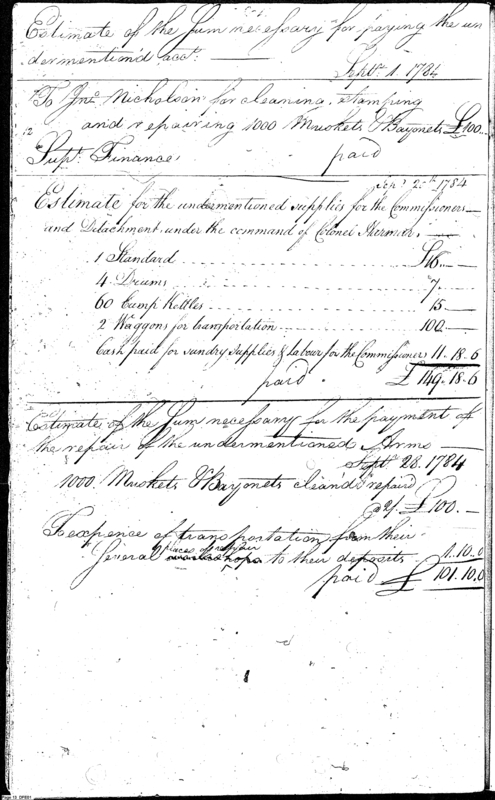 Estimate of the Sum necessary for paying the un
dermentiond acct.
Sept. 1. 1784
To Jno. Nicholson for cleaning, stamping
12 and repairing 1000 Muskets & Bayonets £100.
Supt. Finance, paid
1784
Estimate for the undermentioned supplies for the Commissioners
and Detachment under the command of Colonel
1 Standard £16.
4 Drums 7.
60 Camp Kettles 15
2 Waggons for transportation 100.
Cash paid for sundry supplies & labour for the Commissioners 11.18.6
paid. £149.18.6
Estimate of the Sum necessary for the payment of
the repair of the undermentioned Arms
Sept. 28. 1784
1000 Muskets & Bayonets cleand & repaird
£100.
To expence of transportation from their
places of repair
several to their deposits 1.10.0
paid £101.10.0